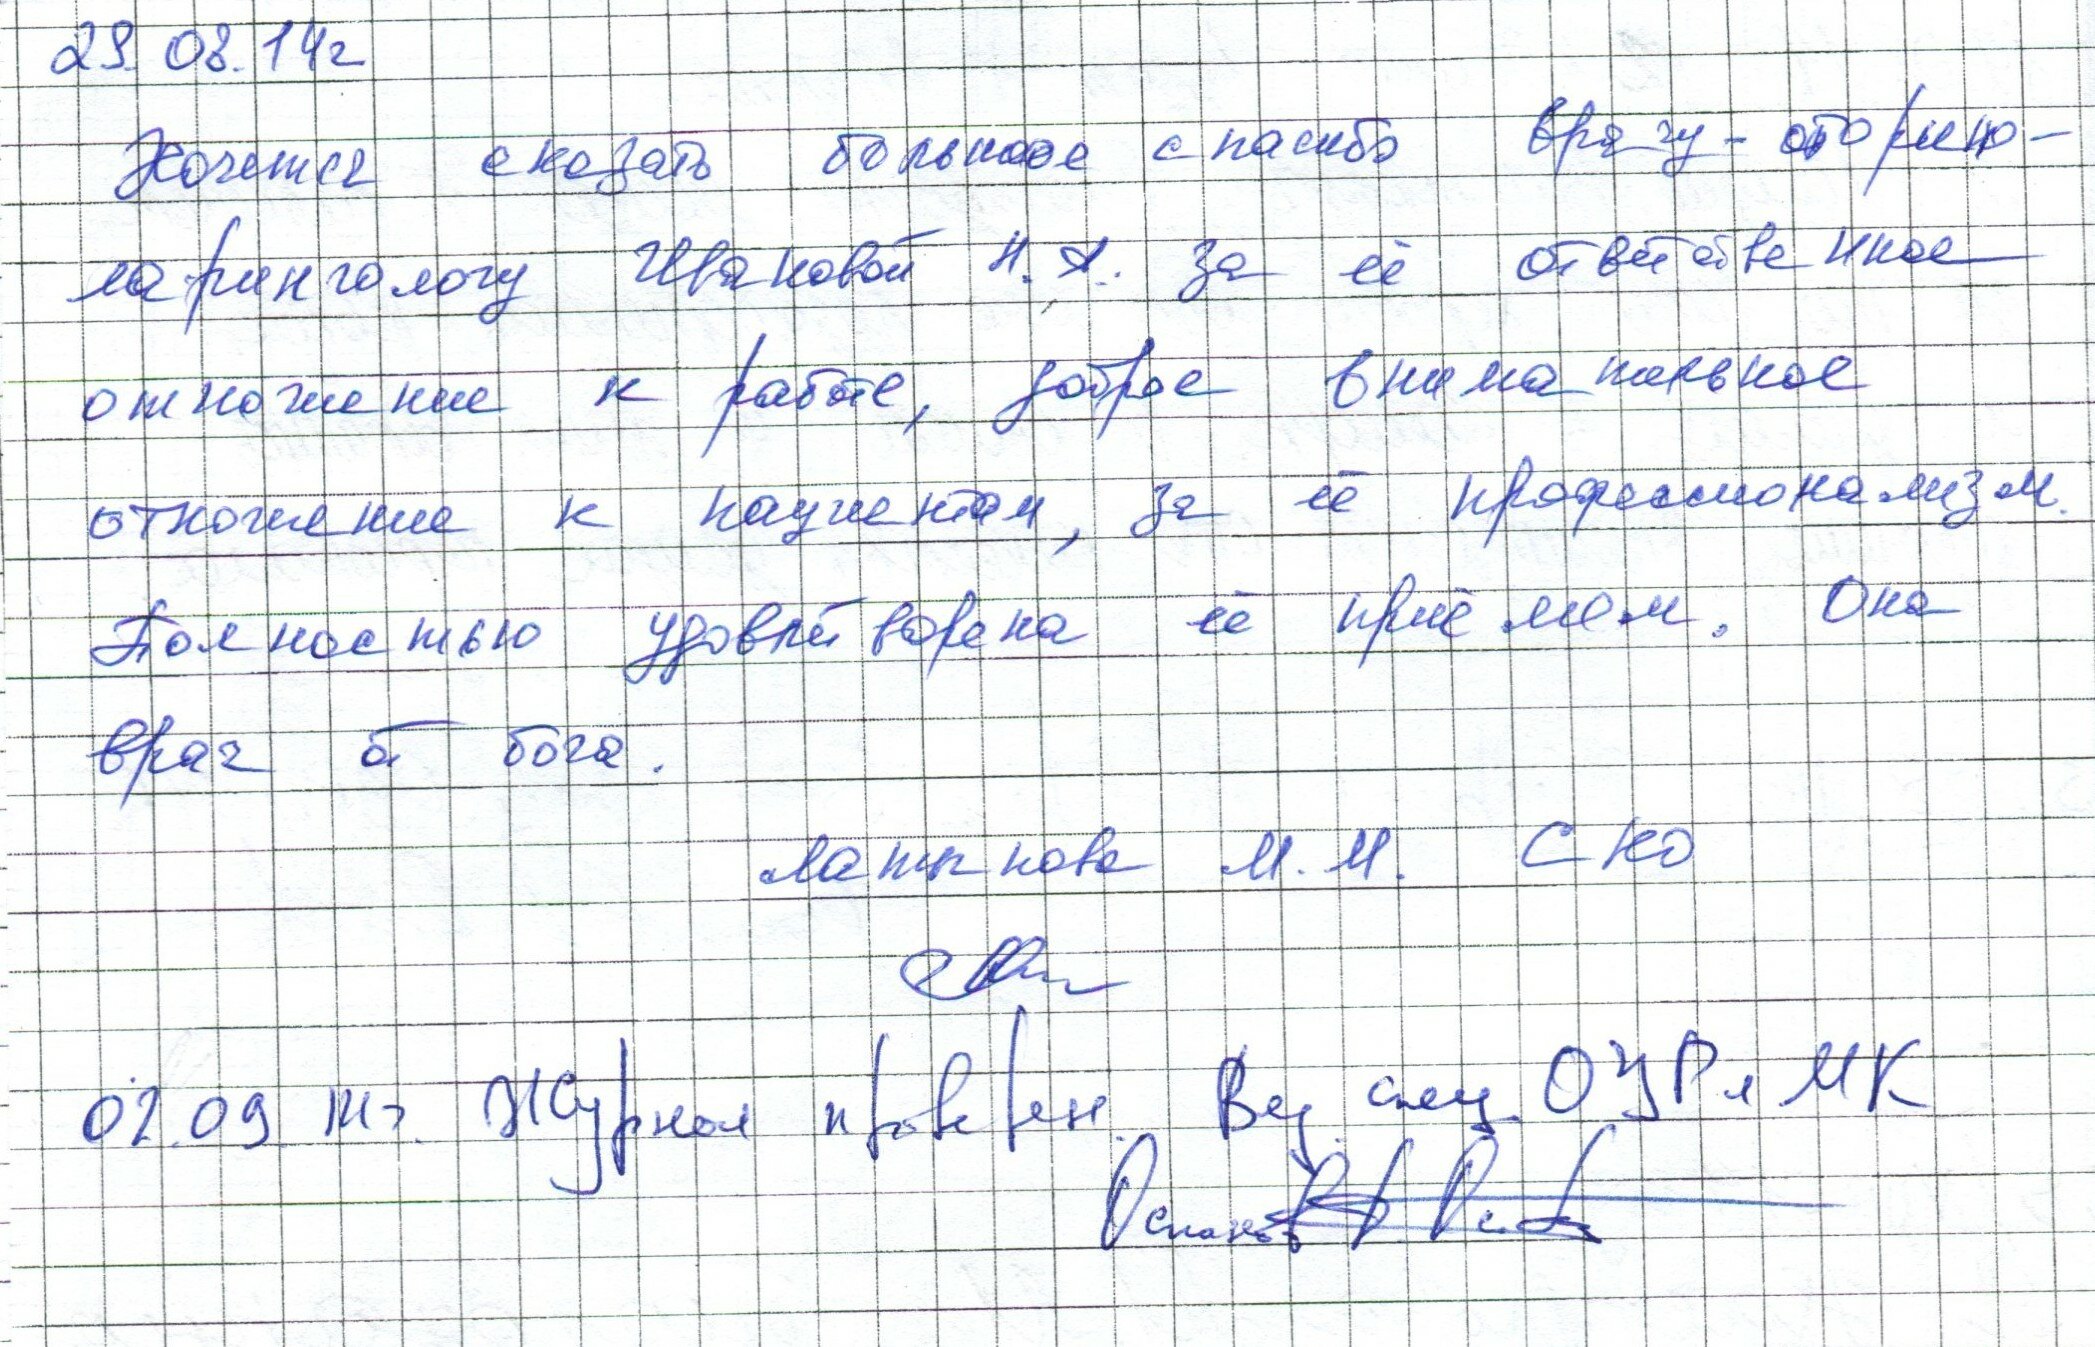 29.08.14г
Хочется сказать большое спасибо врачу-оторино-
ларингологу Ивановой Н.А. за её ответственное
отношение к работе, доброе внимательное
отношение к пациентам, за её профессионализм.
Полностью удовлетворена её приёмом. Она
врач от бога.
Латынова М.М. СКО
02.09.14г. Журнал проверен. Вед. спец. ОУР и МК
Оспанов